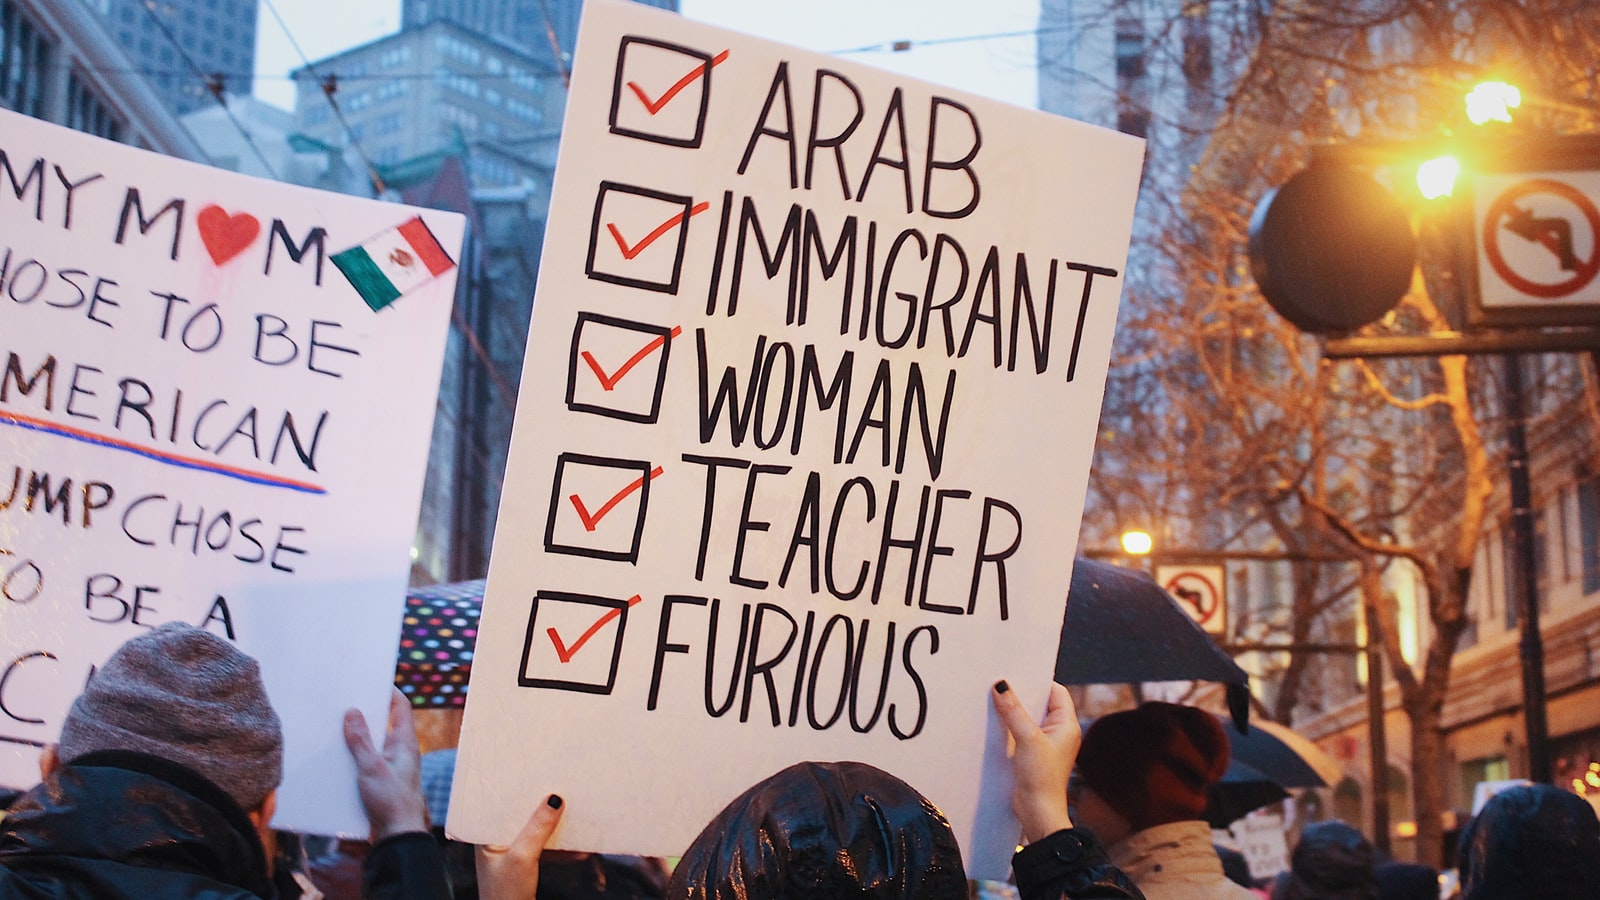 MY MOM
HOSE TO BE
MERICAN
UMP CHOSE
TO BE A
ARAB
IMMIGRANT
WOMAN
TEACHER
FURIOUS